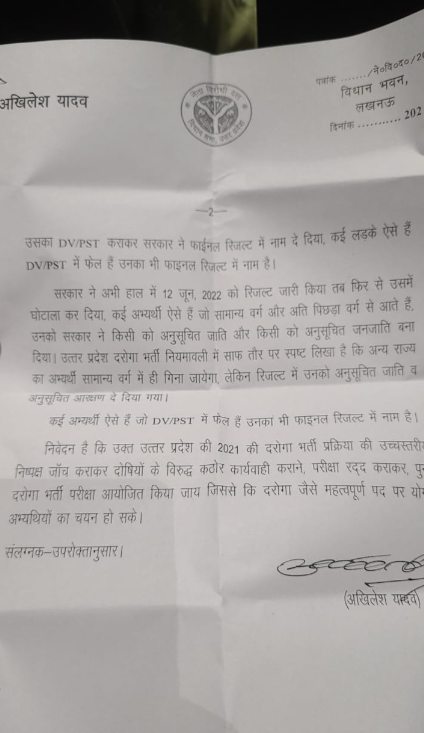 अखिलेश यादव
पत्रांक ......./ने०वि०द०/20
विधान भवन,
लखनऊ
दिनांक ........... 202
नेता विरोधी दल
विधान सभा, उत्तर प्रदेश
—2—
उसका DV/PST कराकर सरकार ने फाईनल रिजल्ट में नाम दे दिया, कई लड़के ऐसे हैं
DV/PST में फेल हैं उनका भी फाइनल रिजल्ट में नाम है।
सरकार ने अभी हाल में 12 जून, 2022 को रिजल्ट जारी किया तब फिर से उसमें
घोटाला कर दिया, कई अभ्यर्थी ऐसे हैं जो सामान्य वर्ग और अति पिछड़ा वर्ग से आते हैं,
उनको सरकार ने किसी को अनुसूचित जाति और किसी को अनुसूचित जनजाति बना
दिया। उत्तर प्रदेश दरोगा भर्ती नियमावली में साफ तौर पर स्पष्ट लिखा है कि अन्य राज्य
का अभ्यर्थी सामान्य वर्ग में ही गिना जायेगा, लेकिन रिजल्ट में उनको अनुसूचित जाति व
अनुसूचित आरक्षण दे दिया गया।
कई अभ्यर्थी ऐसे हैं जो DV/PST में फेल हैं उनका भी फाइनल रिजल्ट में नाम है।
निवेदन है कि उक्त उत्तर प्रदेश की 2021 की दरोगा भर्ती प्रक्रिया की उच्चस्तरीय
निष्पक्ष जाँच कराकर दोषियों के विरुद्ध कठोर कार्यवाही कराने, परीक्षा रद्द कराकर, पुन
दरोगा भर्ती परीक्षा आयोजित किया जाय जिससे कि दरोगा जैसे महत्वपूर्ण पद पर यो
अभ्यथियों का चयन हो सके।
संलग्नक–उपरोक्तानुसार।
(अखिलेश यादव)